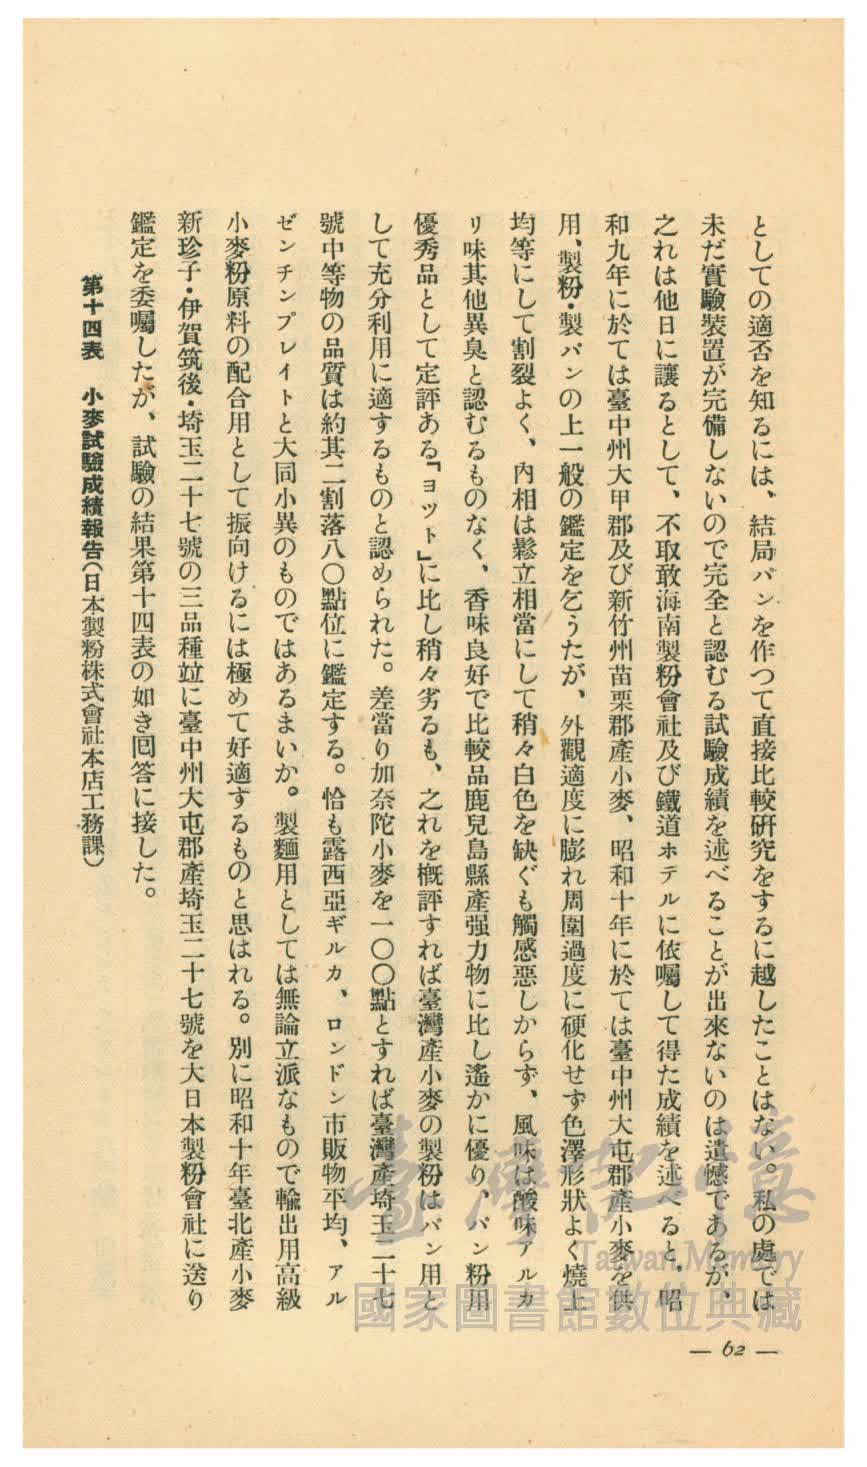 としての適否を知るには、結局パンを作つて直接比較研究をするに越したことはない。私の處では
未だ實驗裝置が完備しないので完全と認むる試驗成績を述べることが出來ないのは遺憾であるが、
之れは他日に讓るとして、不取敢海南製粉會社及び鐵道ホテルに依囑して得た成績を述べると、昭
和九年に於ては臺中州大甲郡及び新竹州苗栗郡產小麥、昭和十年に於ては臺中州大屯郡產小麥を供
用、製粉・製パンの上一般の鑑定を乞うたが、外觀適度に膨れ周圍過度に硬化せず色澤形狀よく燒上
均等にして割裂よく、內相は鬆立相當にして稍々白色を缺ぐも觸感惡しからず、風味は酸味アルカ
リ味其他異臭と認むるものなく、香味良好で比較品鹿兒島縣產强力物に比し遙かに優り、パン粉用
優秀品として定評ある「ヨツト」に比し稍々劣るも、之れを槪評すれば臺灣產小麥の製粉はパン用と
して充分利用に適するものと認められた。差當り加奈陀小麥を一〇〇點とすれば臺灣產埼玉二十七
號中等物の品質は約其二割落八〇點位に鑑定する。恰も露西亞ギルカ、ロンドン市販物平均、アル
ゼンチンプレイトと大同小異のものではあるまいか。製麵用としては無論立派なもので輸出用高級
小麥粉原料の配合用として振向けるには極めて好適するものと思はれる。別に昭和十年臺北產小麥
新珍子・伊賀筑後・埼玉二十七號の三品種竝に臺中州大屯郡產埼玉二十七號を大日本製粉會社に送り
鑑定を委囑したが、試驗の結果第十四表の如き回答に接した。
第十四表 小麥試驗成績報告(日本製粉株式會社本店工務課)
— 62 —
臺灣記憶
Taiwan Memory
國家圖書館數位典藏